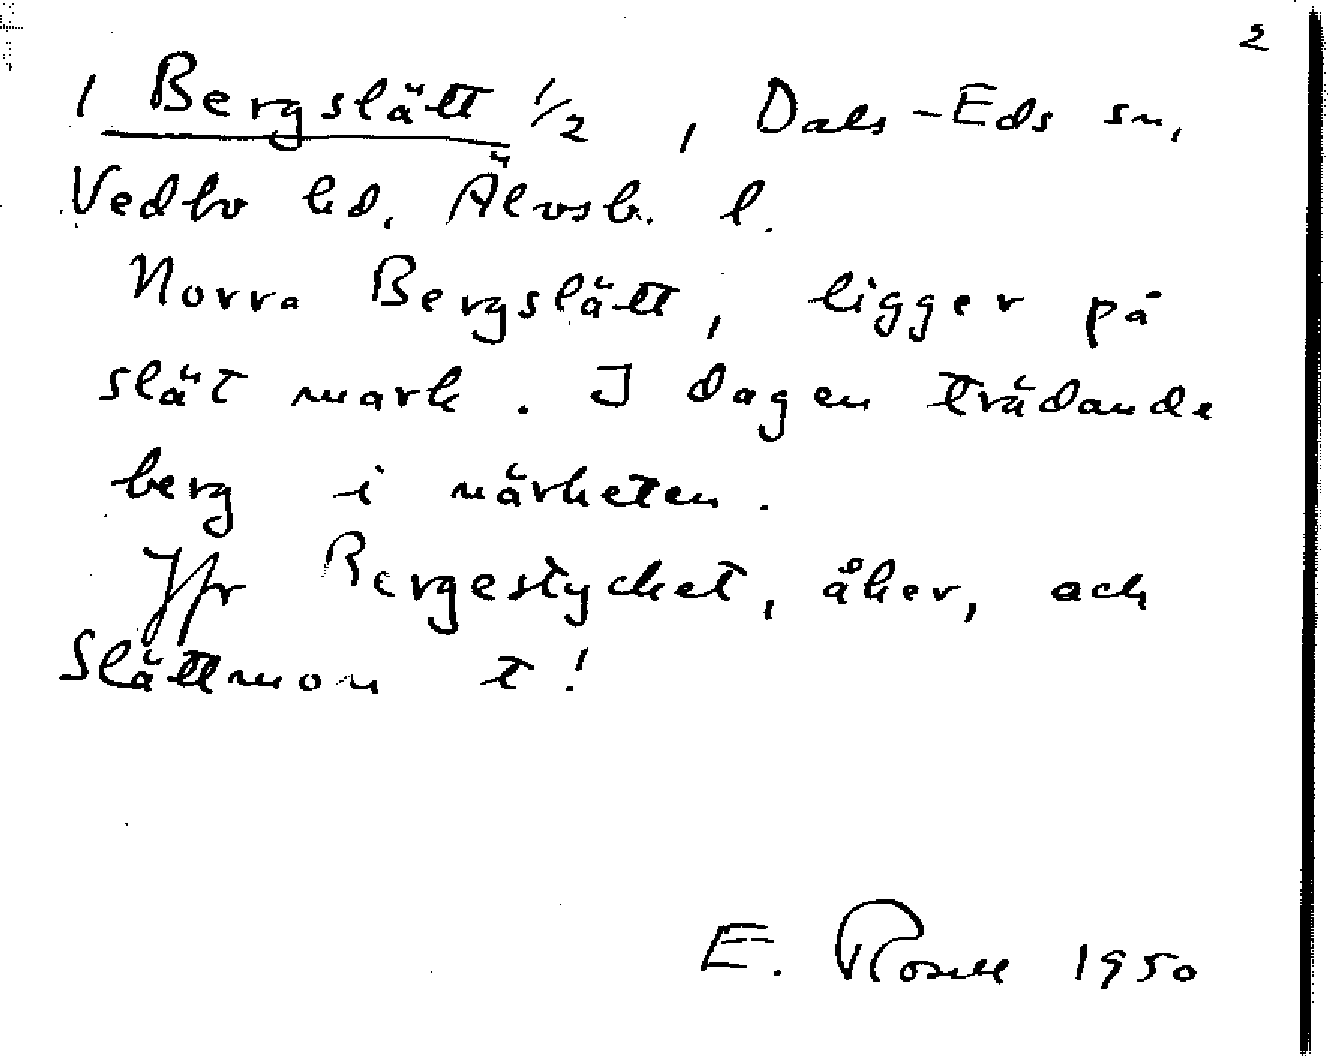 2
1 Bergslätt 1/2, Dals-Eds sn,
Vedbo hd. Älvsb. l.
Norra Bergslätt, ligger på
slät mark. I dagen trädande
berg i närheten.
Jfr Bergestycket, åker, och
Slättmon t!
E. Rosell 1950